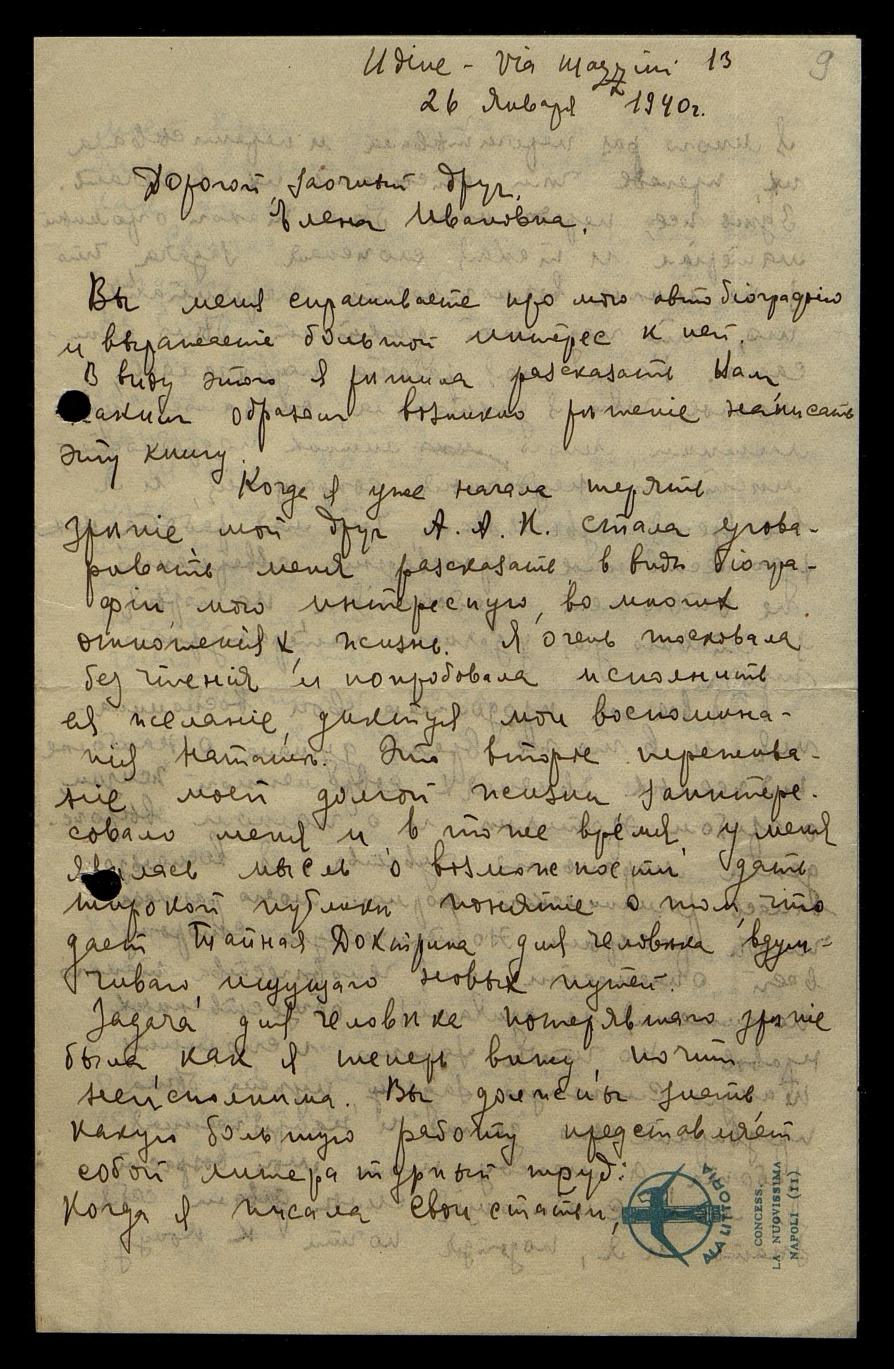 Udine - Via Mazzini 13
9
26 Января 1940г.
Дорогой, заочный друг,
Елена Ивановна,
Вы меня спрашиваете про мою автобіографію
и выражаете большой интерес к ней.
В виду этого я рѣшила разсказать Вам
каким образом возникло рѣшеніе написать
эту книгу.
Когда я уже начала терять
зрѣніе мой друг А. А. К. стала угова-
ривать меня разсказать в видѣ біогра-
фіи мою интересную, во многих
отношеніях, жизнь. Я очень тосковала
без чтенія и попробовала исполнить
ея желаніе, диктуя мои воспомина-
нія Наташѣ. Это второе пережива-
ніе моей долгой жизни заинтере-
совало меня и в тоже время у меня
явилась мысль о возможности дать
широкой публикѣ понятіе о том, что
дает Тайная Доктрина для человѣка вдум-
чиваго, ищущаго новых путей.
Задача для человѣка потерявшаго зрѣніе
была, как я теперь вижу, почти
неисполнима. Вы должны знать
какую большую работу представляет
собой литературный труд:
Когда я писала свои статьи,
ALA LITTORIA
CONCESS.
LA NUOVISSIMA
NAPOLI (II)